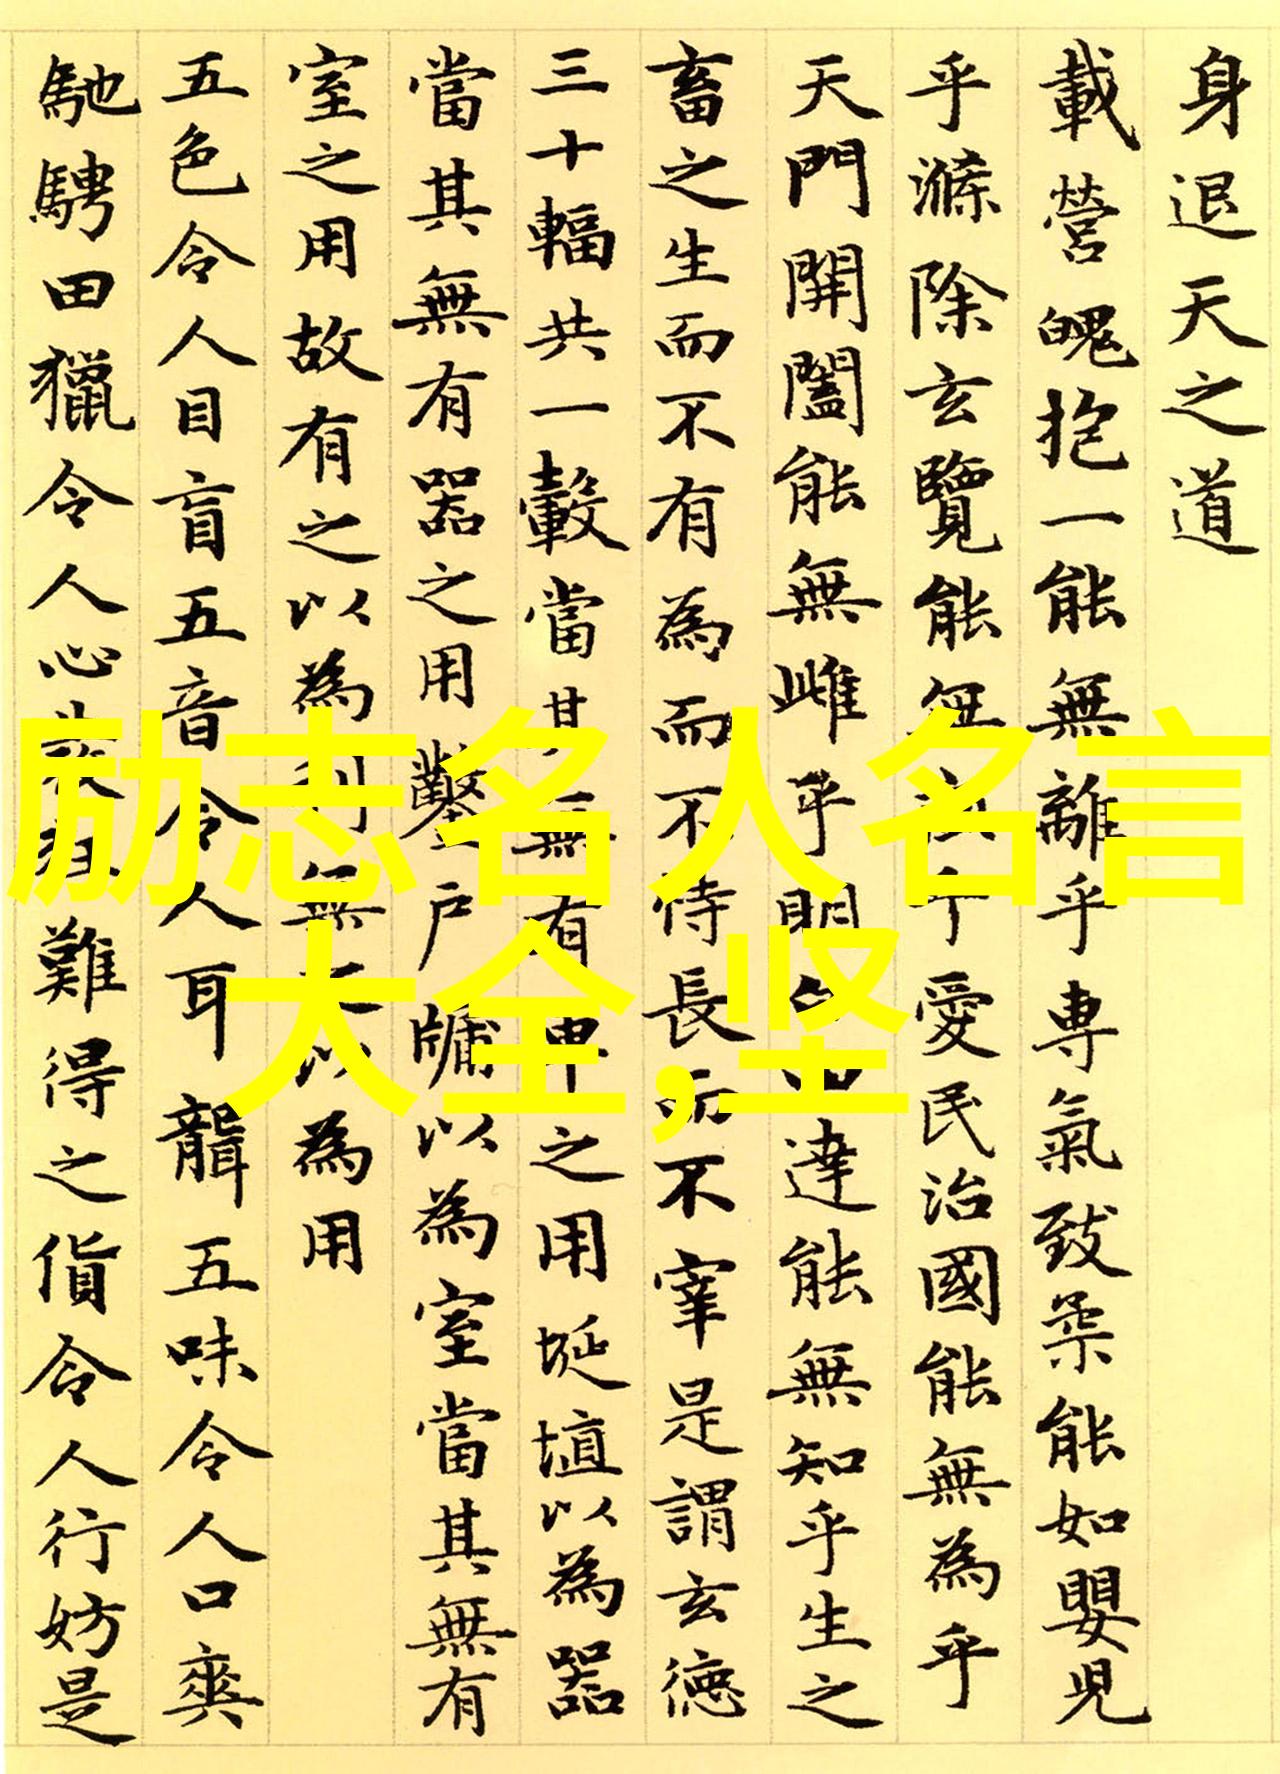 身退天之道
載營魄抱一能無離乎專氣致柔能如嬰兒
乎滌除玄覽能無乎愛民治國能無為乎
天門開闔能無雌乎明白達能無知乎生之
畜之生而不有為而不恃長而不宰是謂玄德
三十輻共一轂當其無有車之用埏埴以為器
當其無有器之用鑿戶牖以為室當其無有
室之用故有之以為利無之以為用
五色令人目盲五音令人耳聾五味令人口爽
馳騁田獵令人心發狂難得之貨令人行妨是
励志名人名言
大全,坚